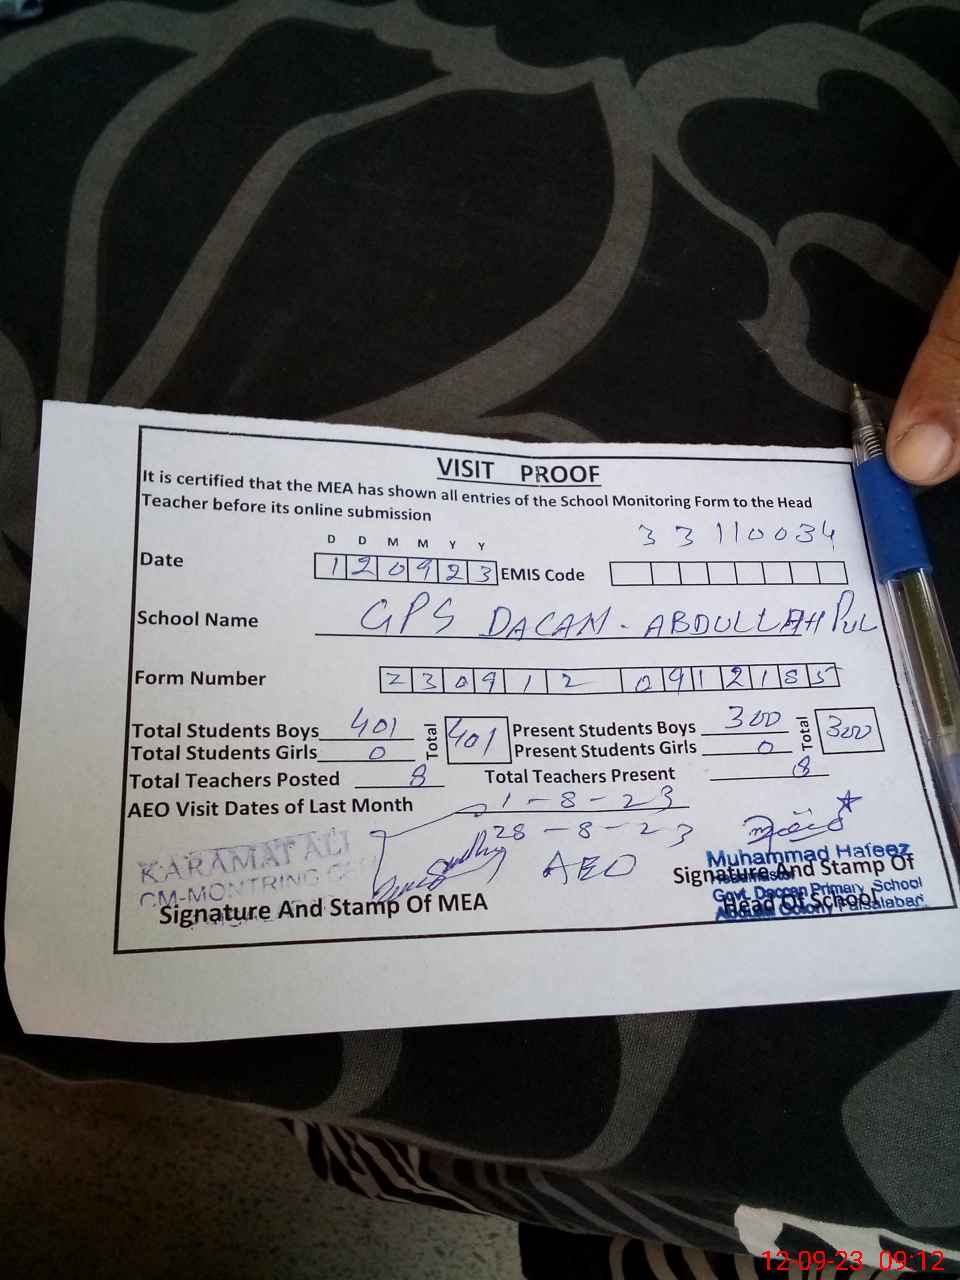 VISIT PROOF
It is certified that the MEA has shown all entries of the School Monitoring Form to the Head
Teacher before its online submission
D D M M Y Y
33110034
Date 120923 EMIS Code
School Name GPS DACAM. ABDULLAH PUL
Form Number 230912 0912185
Total Students Boys 401 Total 401 Present Students Boys 300 Total 300
Total Students Girls 0 Present Students Girls 0
Total Teachers Posted 8 Total Teachers Present 8
AEO Visit Dates of Last Month 1-8-23
28-8-23
AEO
KARAMAT ALI
CM-MONTRING
Signature And Stamp Of MEA
Muhammad Hafeez
Signature And Stamp Of
Headmaster
Govt. Deccan Primary School
Head Of School
Abdullah Colony Faisalabad.
12-09-23 09:12